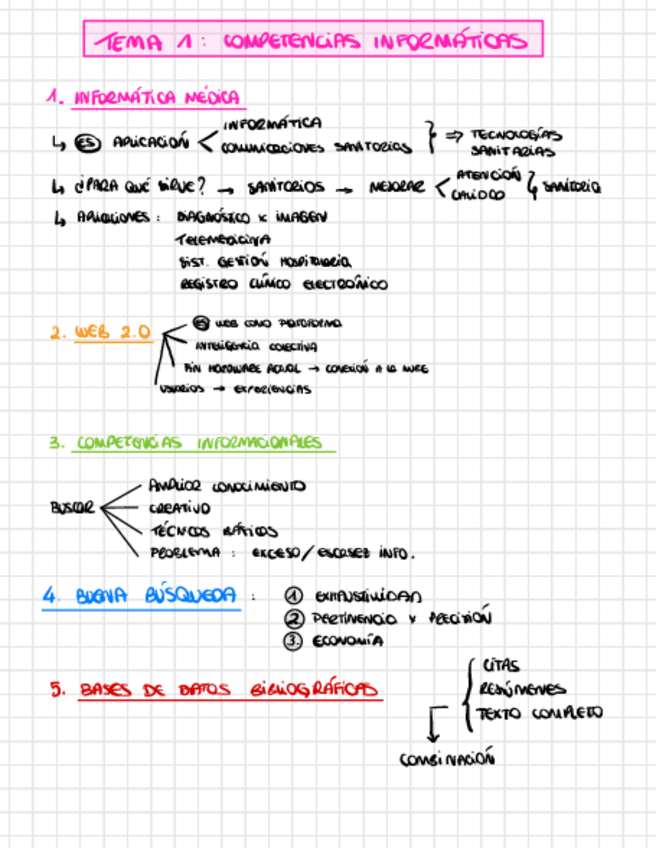 TEMA 1: COMPETENCIAS INFORMÁTICAS
1. INFORMÁTICA MÉDICA
↳ ES APLICACIÓN < INFORMÁTICA
COMUNICACIONES SANITARIAS } ⇒ TECNOLOGÍAS SANITARIAS
↳ ¿PARA QUÉ SIRVE? → SANITARIOS → MEJORAR < ATENCIÓN
CALIDAD } SANITARIA
↳ APLICACIONES: DIAGNÓSTICO X IMAGEN
TELEMEDICINA
SIST. GESTIÓN HOSPITALARIA
REGISTRO CLÍNICO ELECTRÓNICO
2. WEB 2.0
ES WEB COMO PLATAFORMA
INTELIGENCIA COLECTIVA
FIN HARDWARE ACTUAL → CONEXIÓN A LA NUBE
USUARIOS → EXPERIENCIAS
3. COMPETENCIAS INFORMACIONALES
BUSCAR
AMPLIAR CONOCIMIENTO
CREATIVO
TÉCNICAS BÁSICAS
PROBLEMA: EXCESO/ESCASEZ INFO.
4. BUENA BÚSQUEDA:
① EXHAUSTIVIDAD
② PERTINENCIA Y PRECISIÓN
③ ECONOMÍA
5. BASES DE DATOS BIBLIOGRÁFICAS
CITAS
RESÚMENES
TEXTO COMPLETO
COMBINACIÓN